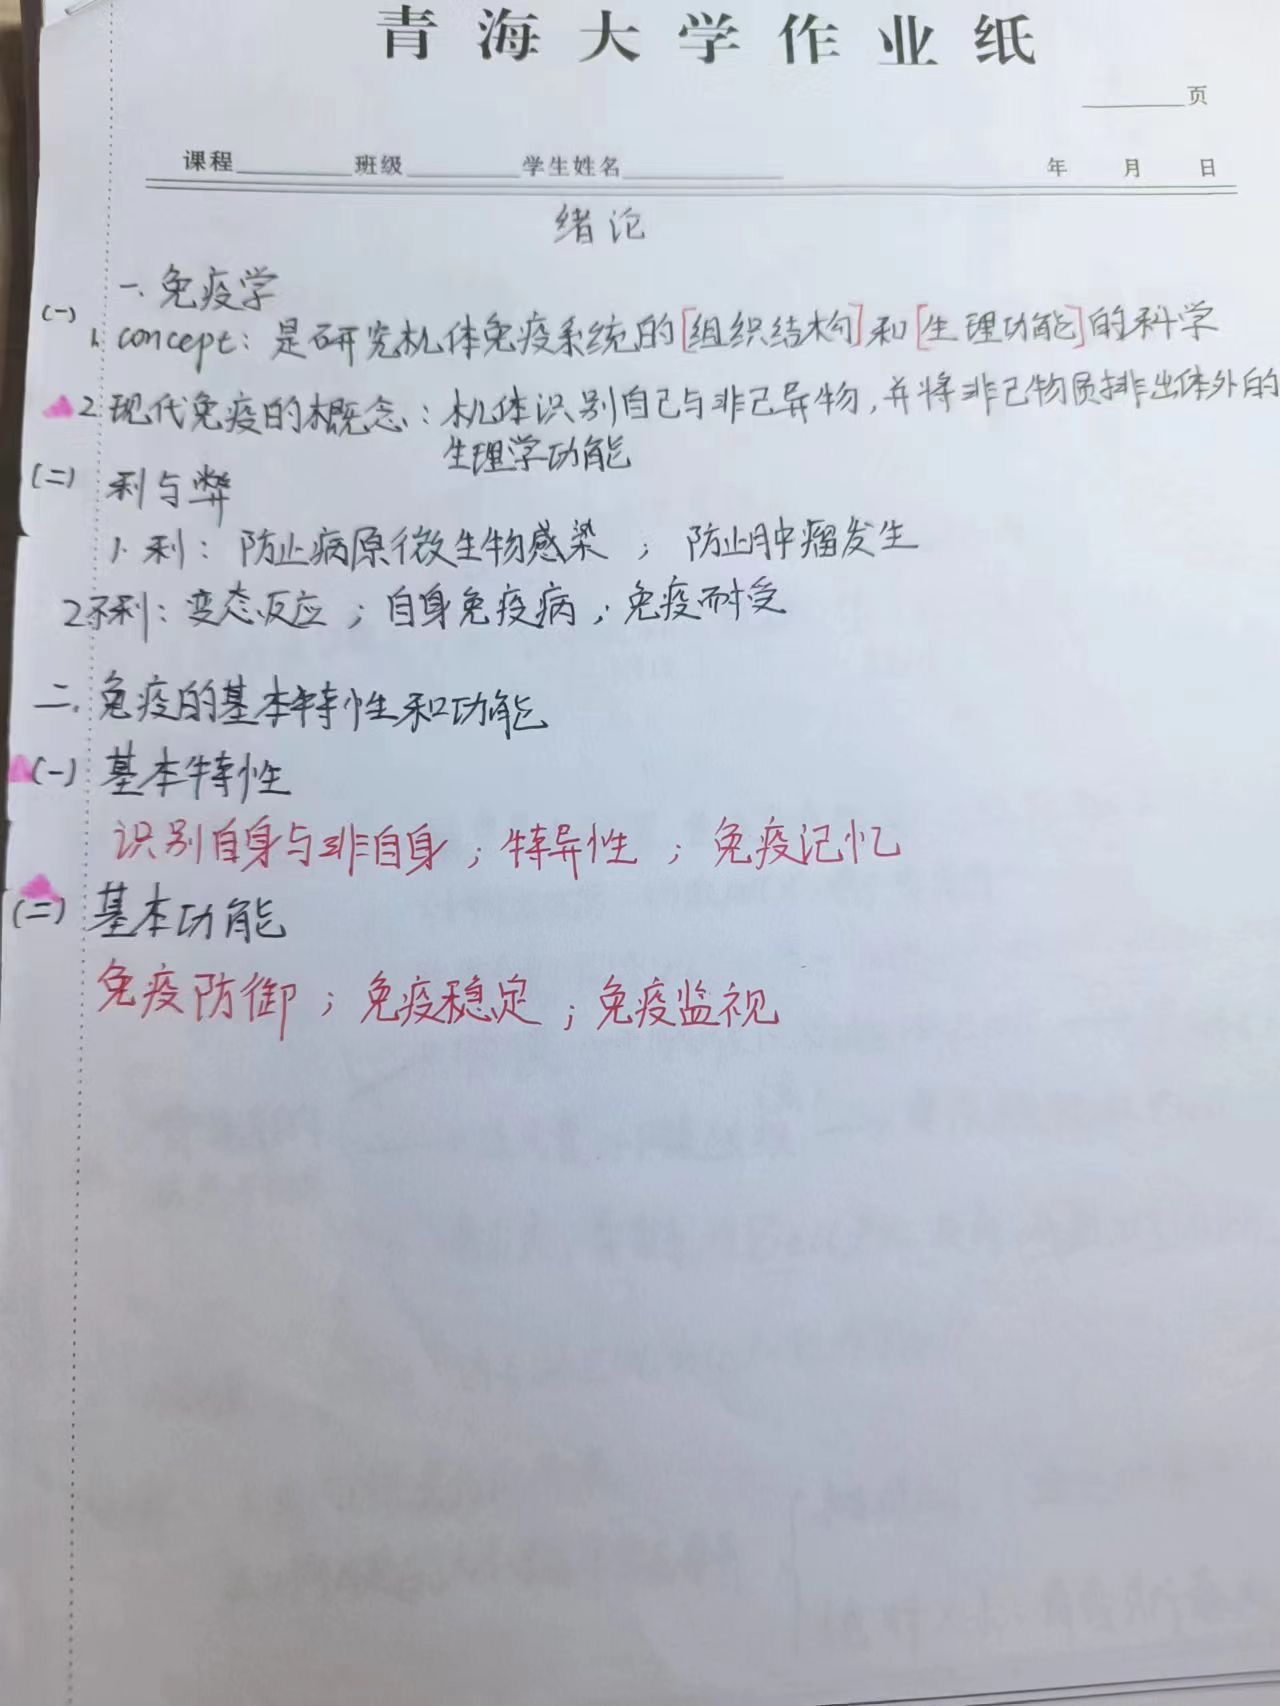 青海大学作业纸
页
课程 班级 学生姓名 年 月 日
绪论
一. 免疫学
(一)
1. concept: 是研究机体免疫系统的[组织结构]和[生理功能]的科学
2. 现代免疫的概念: 机体识别自己与非己异物,并将非己物质排出体外的
生理学功能
(二) 利与弊
1. 利: 防止病原微生物感染 ; 防止肿瘤发生
2不利: 变态反应 ; 自身免疫病 ; 免疫耐受
二. 免疫的基本特性和功能
(一) 基本特性
识别自身与非自身 ; 特异性 ; 免疫记忆
(二) 基本功能
免疫防御 ; 免疫稳定 ; 免疫监视